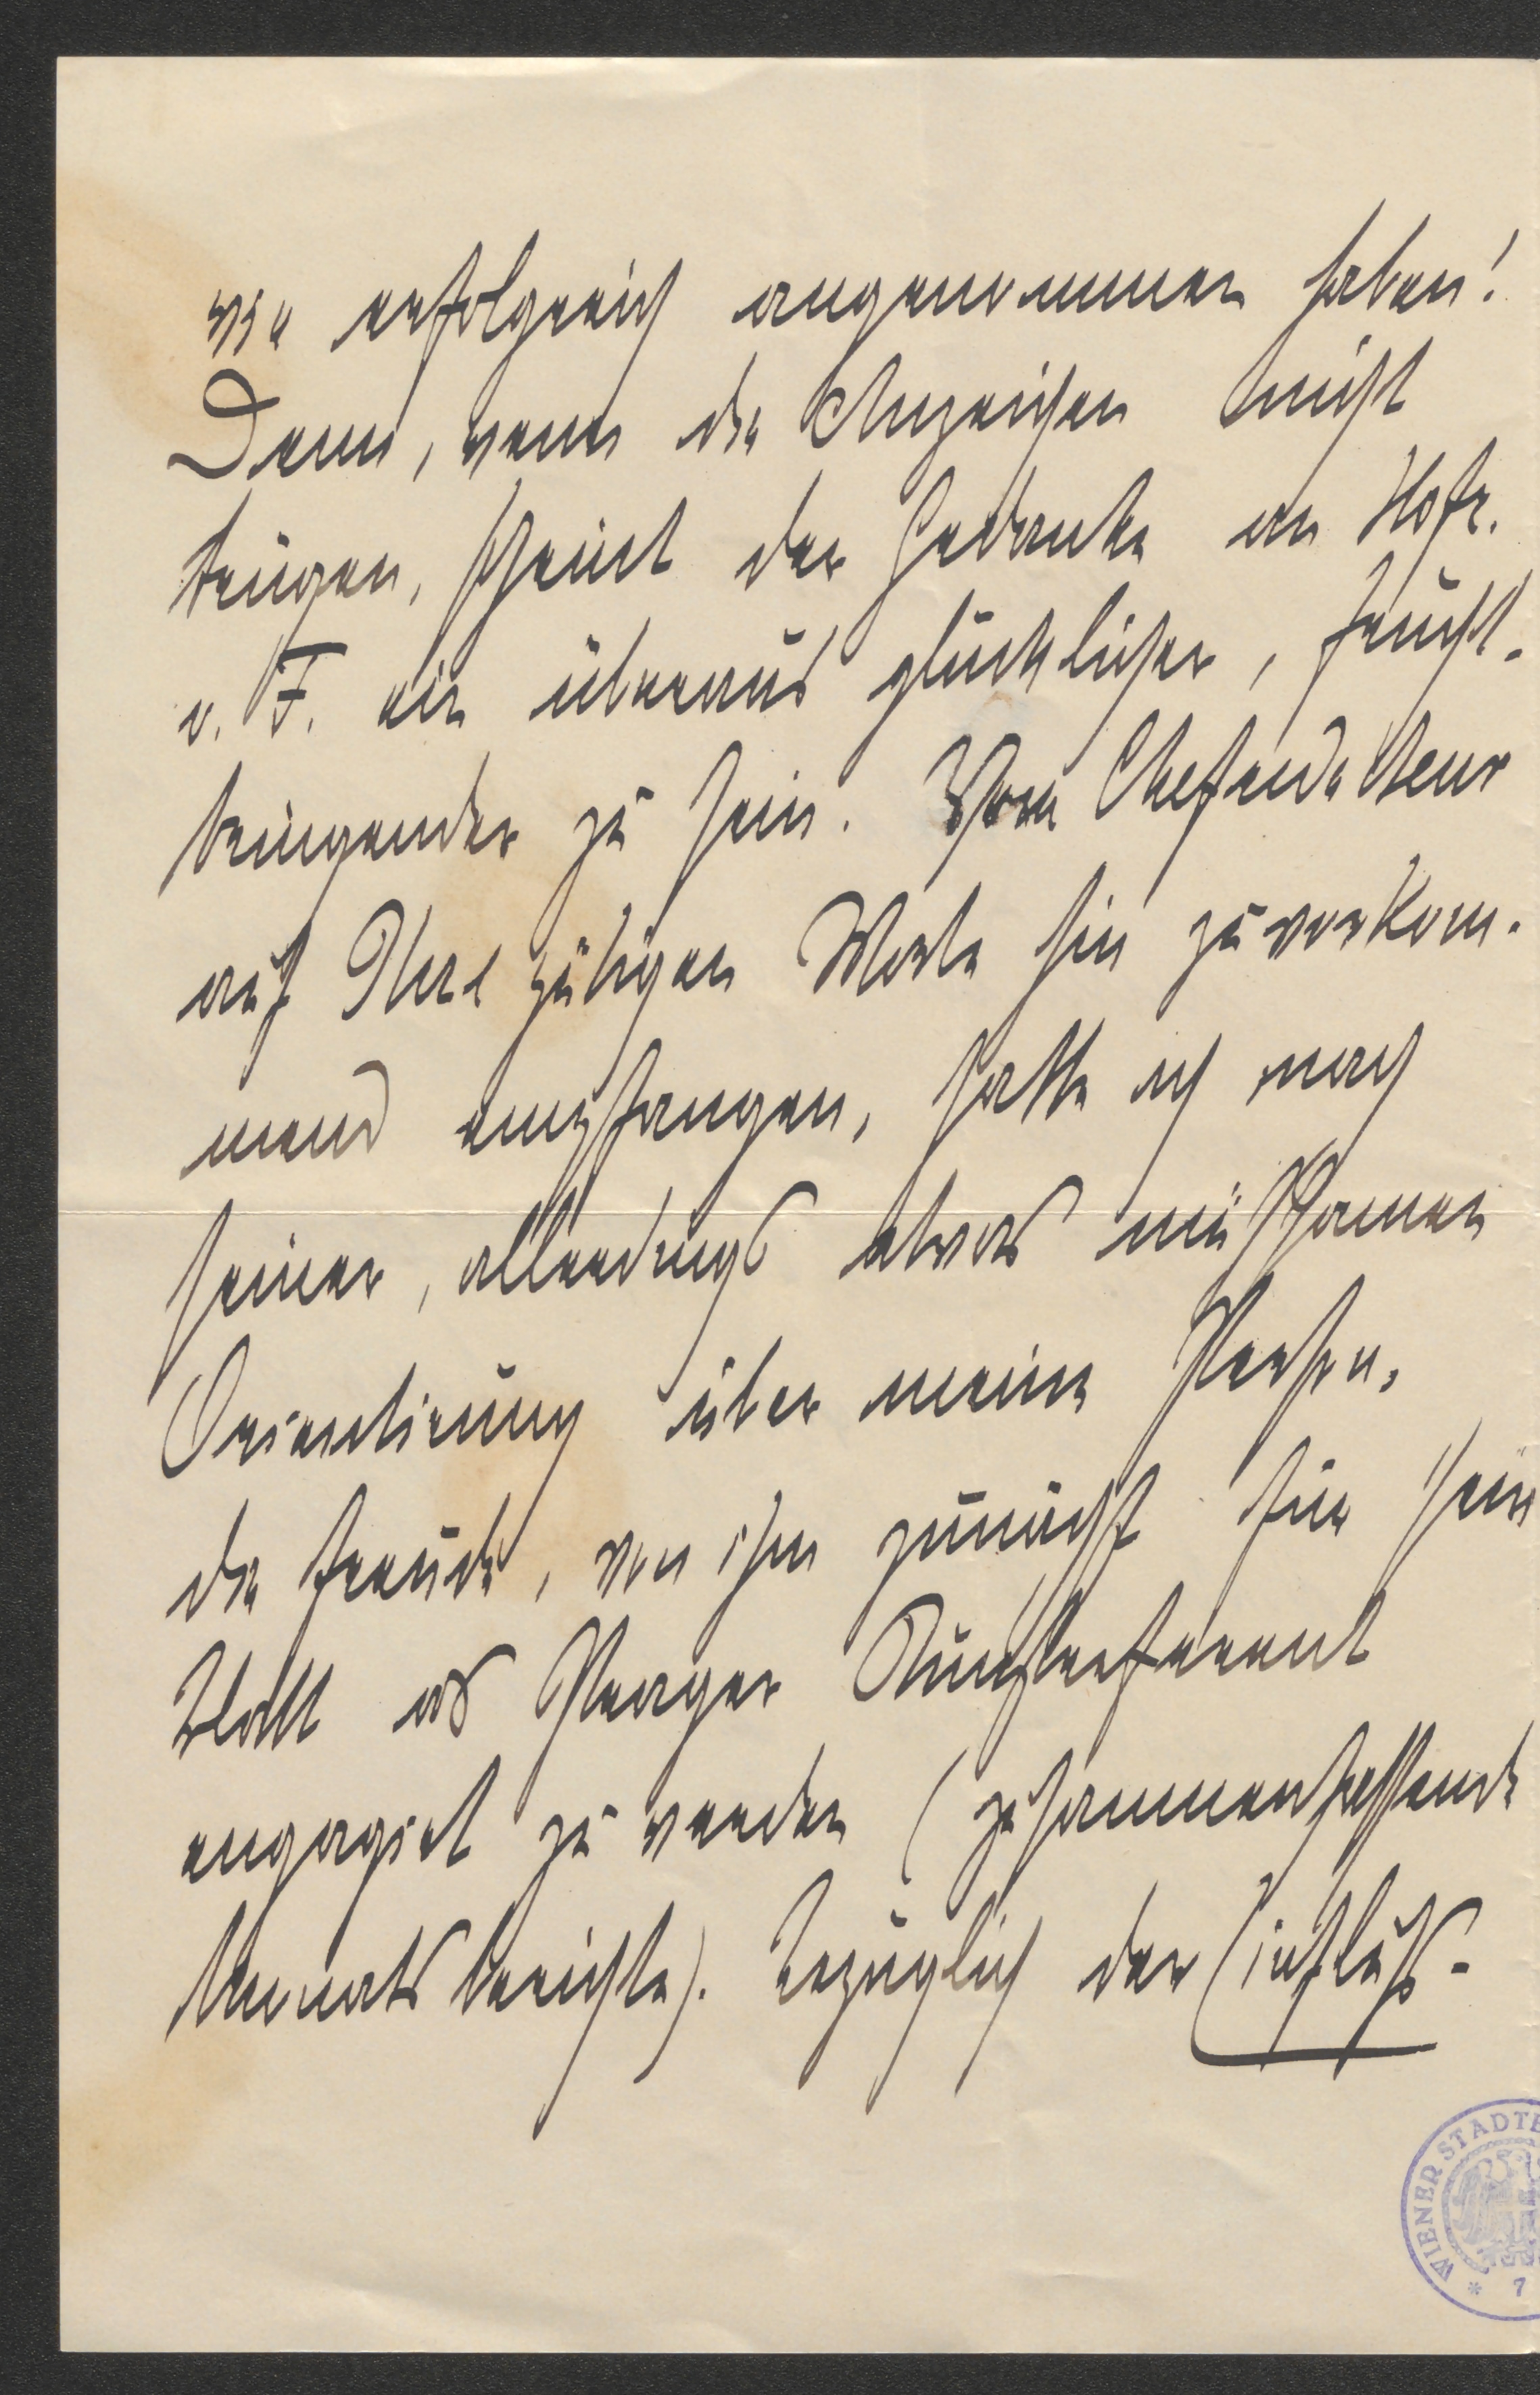 wie erfolgreich angenommen haben!
Denn, wenn die Anzeichen nicht
trügen, scheint der Gedanke an Hofr.
v. F. ein überaus glücklicher, frucht-
bringender zu sein. Vom Chefredakteur
auf Ihre gütigen Worte hin zuvorkom-
mend empfangen, hatte ich nach
seiner, allerdings etwas mühsamen
Orientierung über meine Person,
die Freude, von ihm zunächst für sein
Blatt als Prager Kunstreferent
engagiert zu werden (zusammenfassende
Monatsberichte). Bezüglich der Einfluß-
WIENER STADTB
* 7